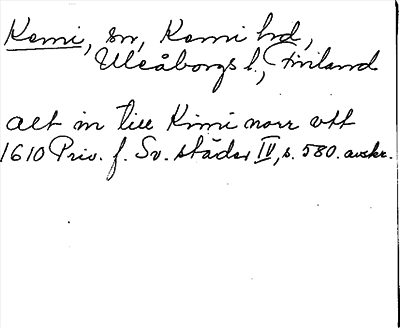 Kemi, sn, Kemi hd,
Uleåborgs l., Finland
alt in till Kimi norr vtt
1610 Priv. f. Sv. städer IV, s. 580. avskr.